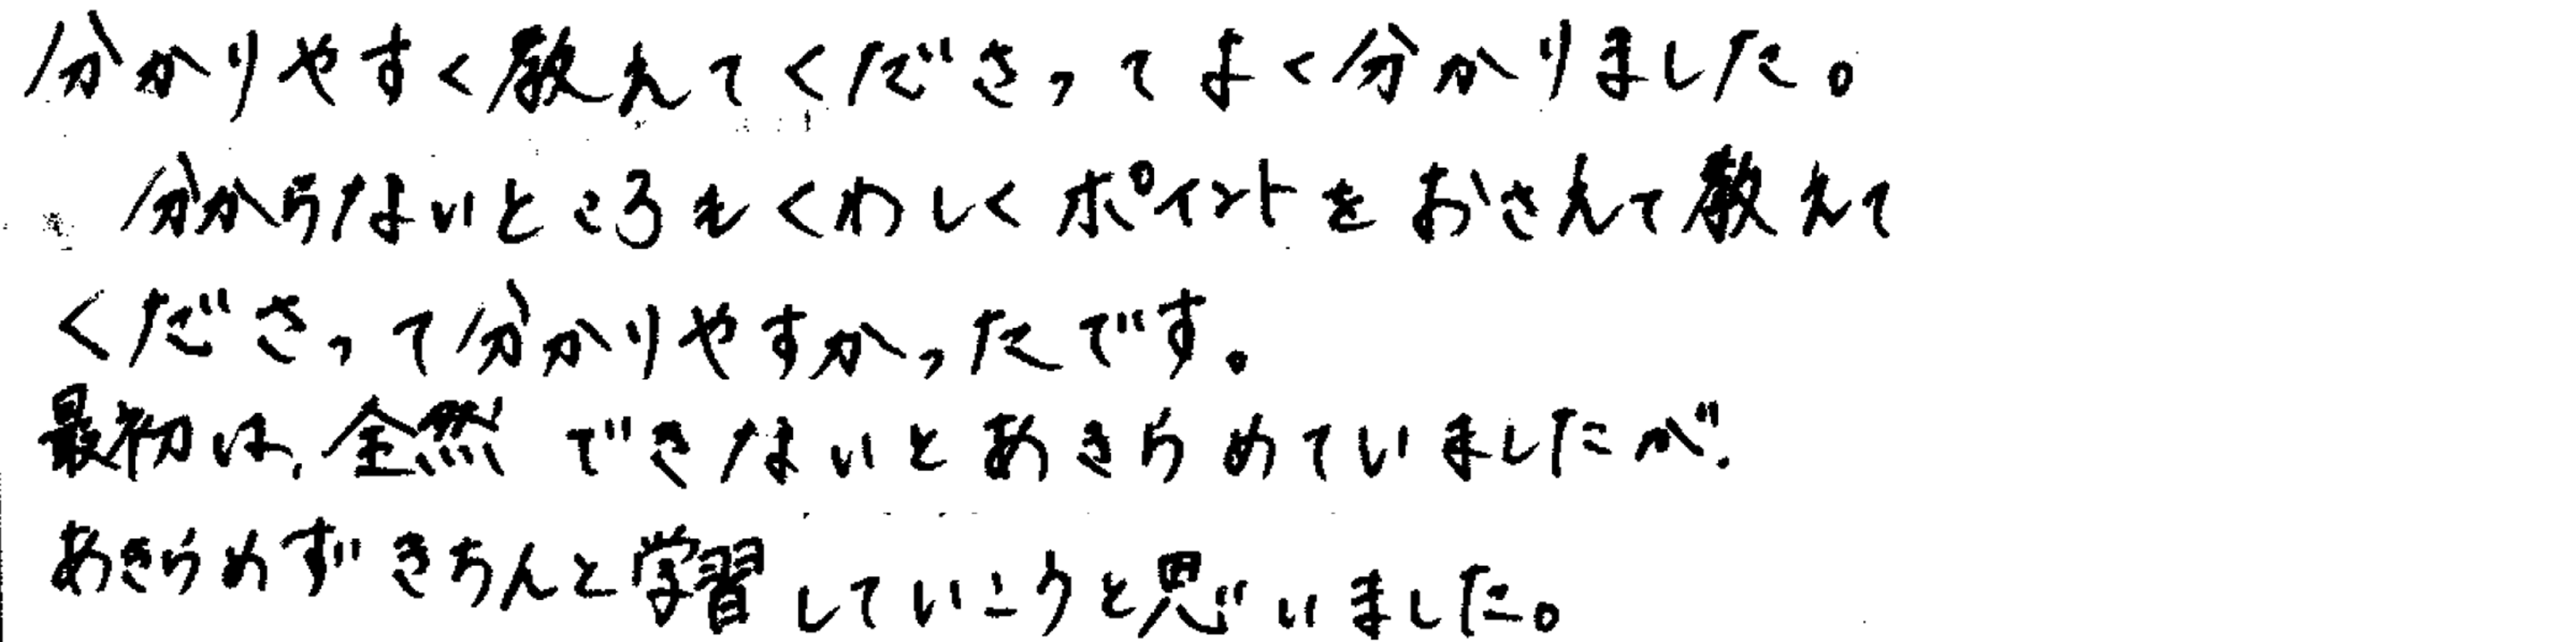 分かりやすく教えてくださってよく分かりました。
分からないところをくわしくポイントをおさえて教えて
くださって分かりやすかったです。
最初は、全然できないとあきらめていましたが、
あきらめずきちんと学習していこうと思いました。